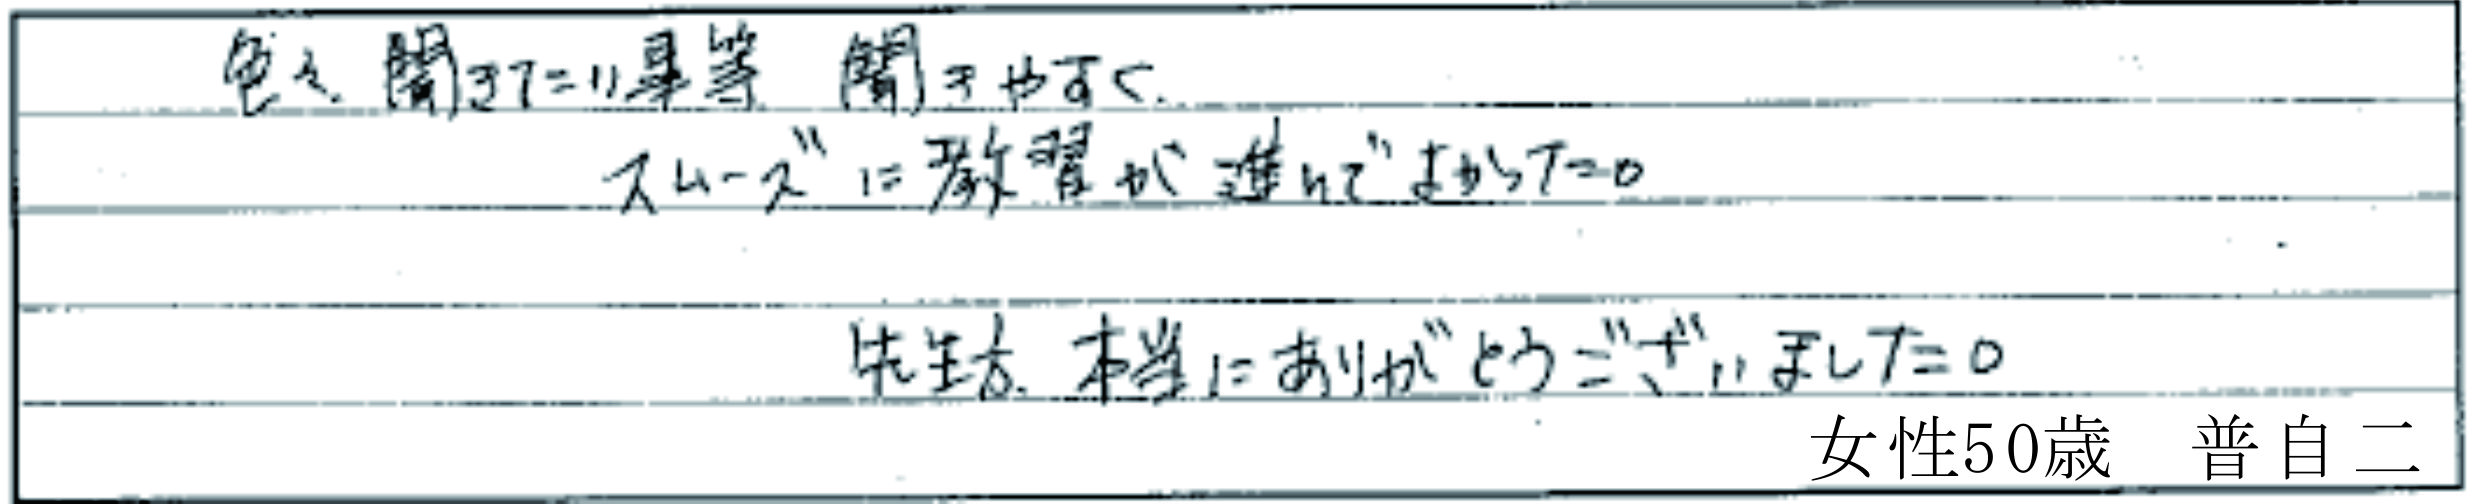 色々、聞きたい事等、聞きやすく、
スムーズに教習が進んでよかった。
先生方、本当にありがとうございました。
女性50歳　普自二